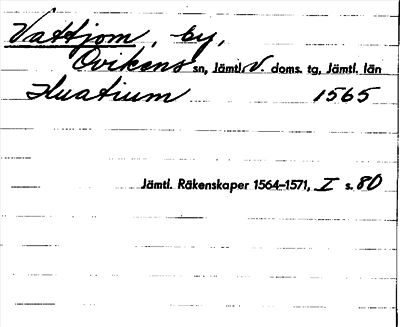 Vattjom, by,
Ovikens sn, Jämtl. V. doms. tg, Jämtl. län
Huatium 1565
Jämtl. Räkenskaper 1564–1571, I s. 80